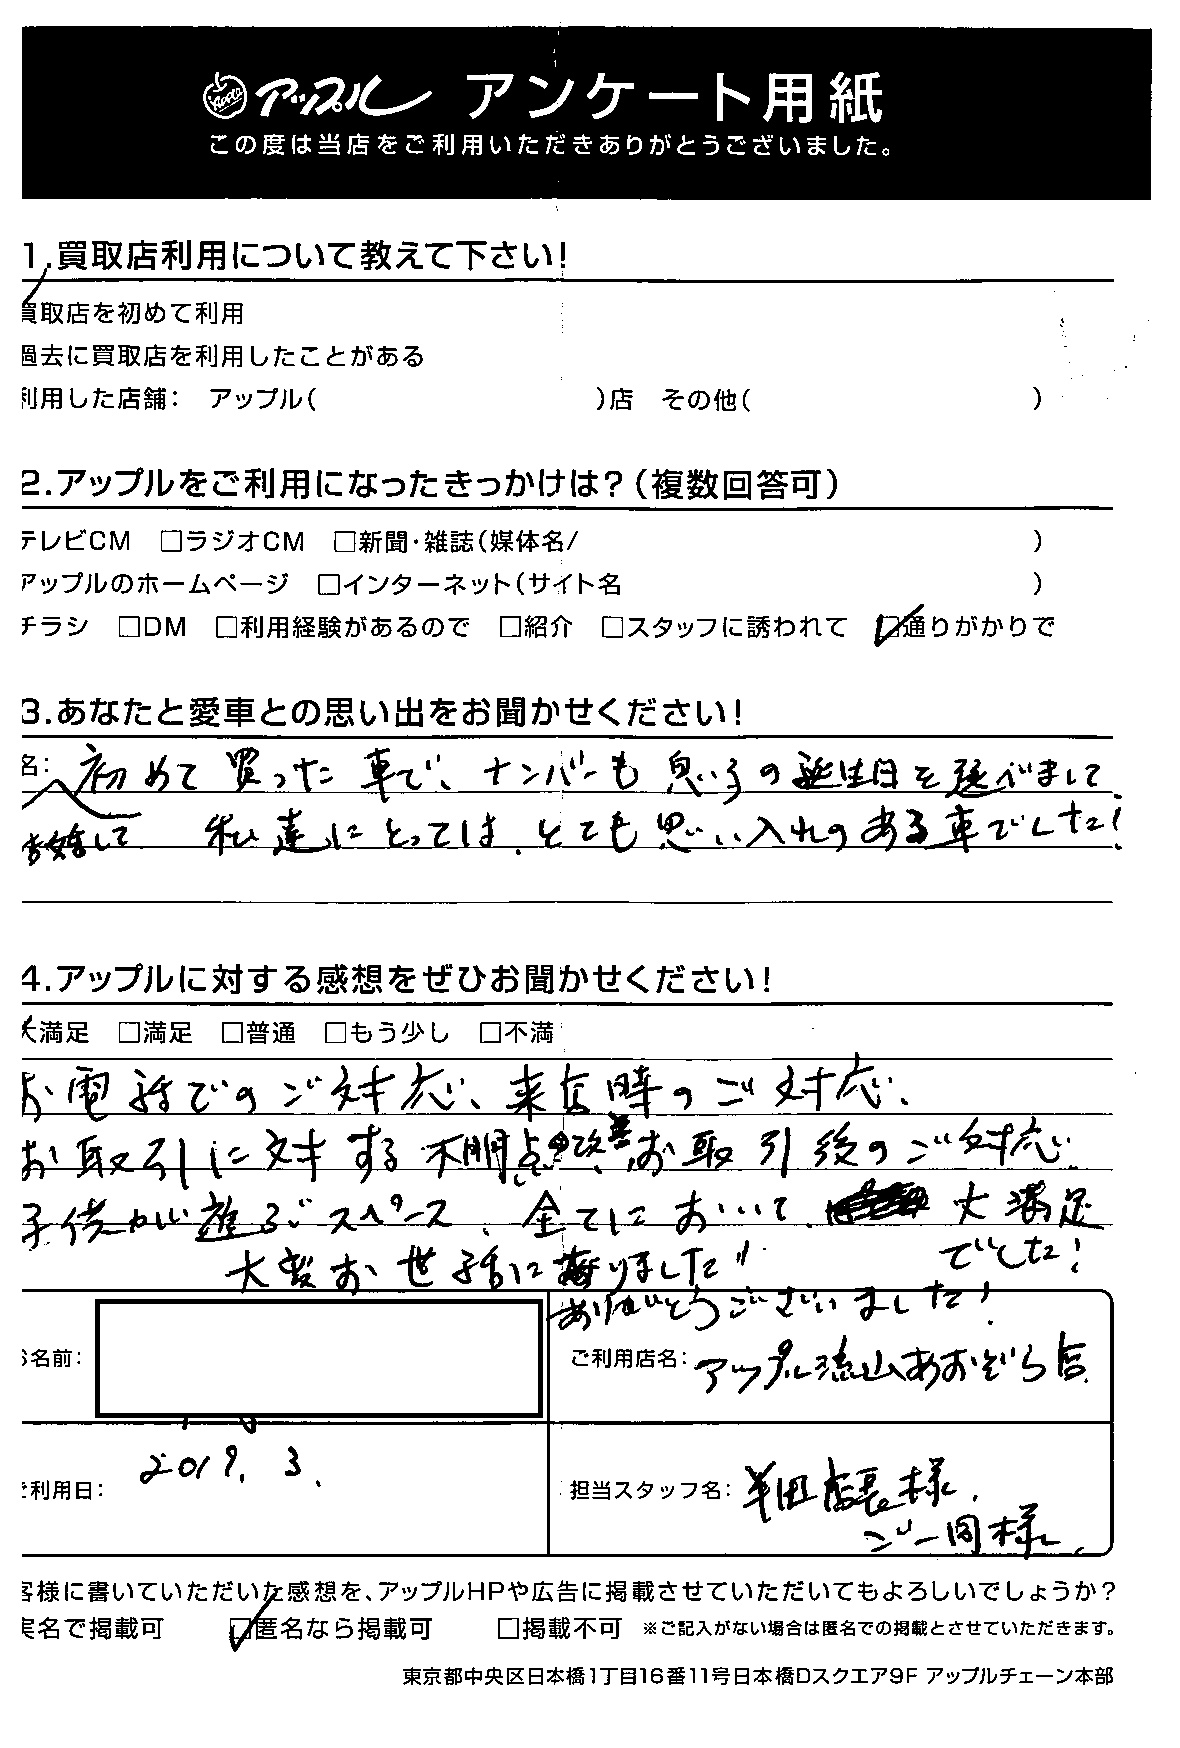 アップル アンケート用紙
この度は当店をご利用いただきありがとうございました。
1.買取店利用について教えて下さい!
買取店を初めて利用
過去に買取店を利用したことがある
利用した店舗: アップル( )店 その他( )
2.アップルをご利用になったきっかけは?(複数回答可)
テレビCM □ラジオCM □新聞・雑誌(媒体名/ )
アップルのホームページ □インターネット(サイト名 )
チラシ □DM □利用経験があるので □紹介 □スタッフに誘われて ☑通りがかりで
3.あなたと愛車との思い出をお聞かせください!
名: 初めて買った車で、ナンバーも息子の誕生日を選べまして、
結婚して 私達にとっては、とても思い入れのある車でした!
4.アップルに対する感想をぜひお聞かせください!
大満足 □満足 □普通 □もう少し □不満
お電話でのご対応、来店時のご対応、
お取引に対する不明点 改善、お取引後のご対応、
子供が遊ぶスペース、全てにおいて、大満足
でした!
大変お世話に なりました!!
ありがとうございました!
お名前:
ご利用店名: アップル流山あおぞら店
ご利用日: 2019. 3.
担当スタッフ名: 半田店長様、
ご一同様
客様に書いていただいた感想を、アップルHPや広告に掲載させていただいてもよろしいでしょうか?
実名で掲載可 ☑匿名なら掲載可 □掲載不可 ※ご記入がない場合は匿名での掲載とさせていただきます。
東京都中央区日本橋1丁目16番11号日本橋Dスクエア9F アップルチェーン本部